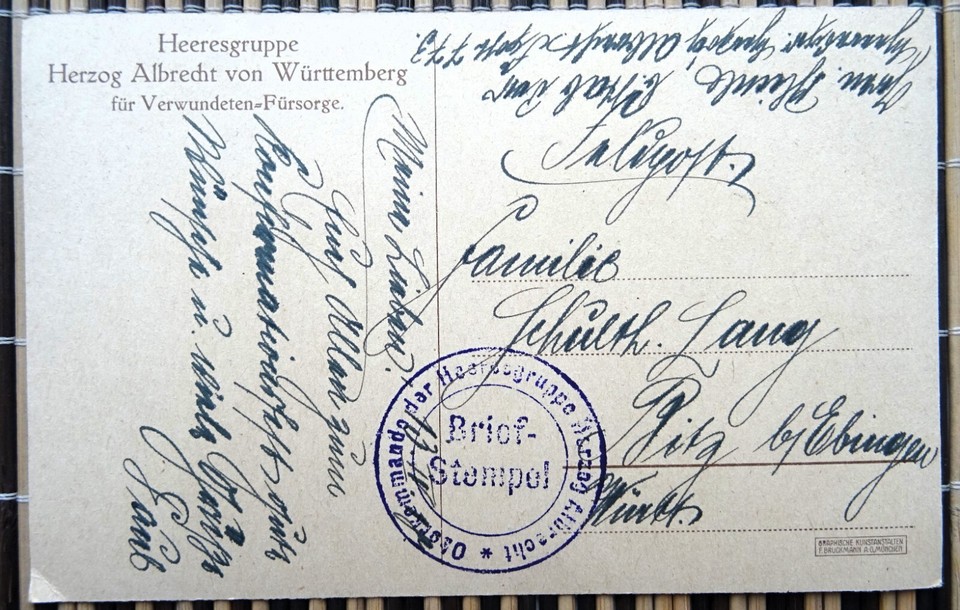 Heeresgruppe
Herzog Albrecht von Württemberg
für Verwundeten=Fürsorge.
Meine Lieben!
Euch Allen zum
Konfirmationsfest gute
Wünsche u. viele Grüße
Feldpost.
Familie
Schulth. Lang
Bitz b/Ebingen
Württ.
Oberkommando der Heeresgruppe Herzog Albrecht *
Brief-
Stempel
GRAPHISCHE KUNSTANSTALTEN
F. BRUCKMANN A.G. MÜNCHEN